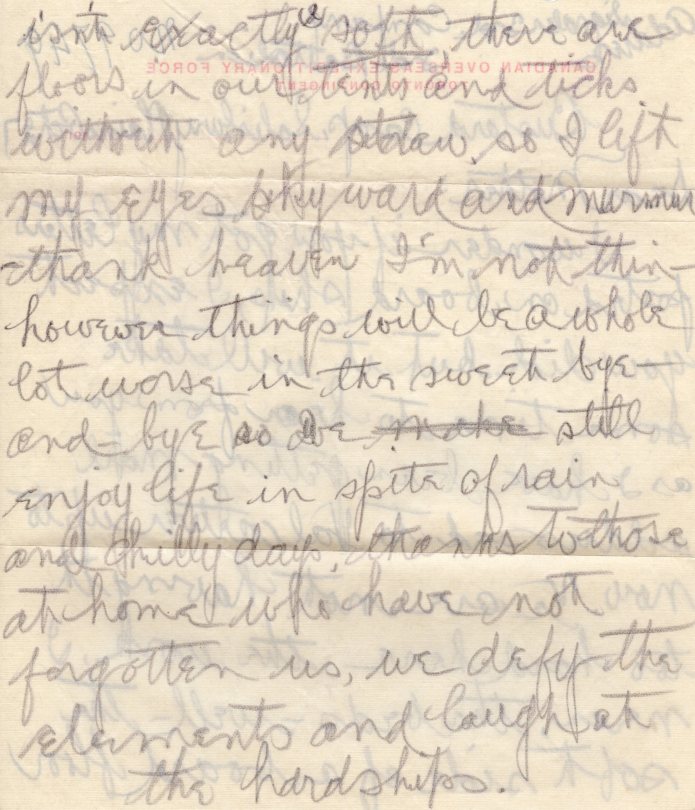 isn't exactly soft, there are
floors in our tents and ticks
without any straw, so I lift
my eyes skyward and murmur
-thank heaven I'm not thin-
however things will be a whole
lot worse in the sweet bye-
and-bye so we make still
enjoy life in spite of rain
and chilly days, thanks to those
at home who have not
forgotten us, we defy the
elements and laugh at
the hardships.
CANADIAN OVERSEAS EXPEDITIONARY FORCE